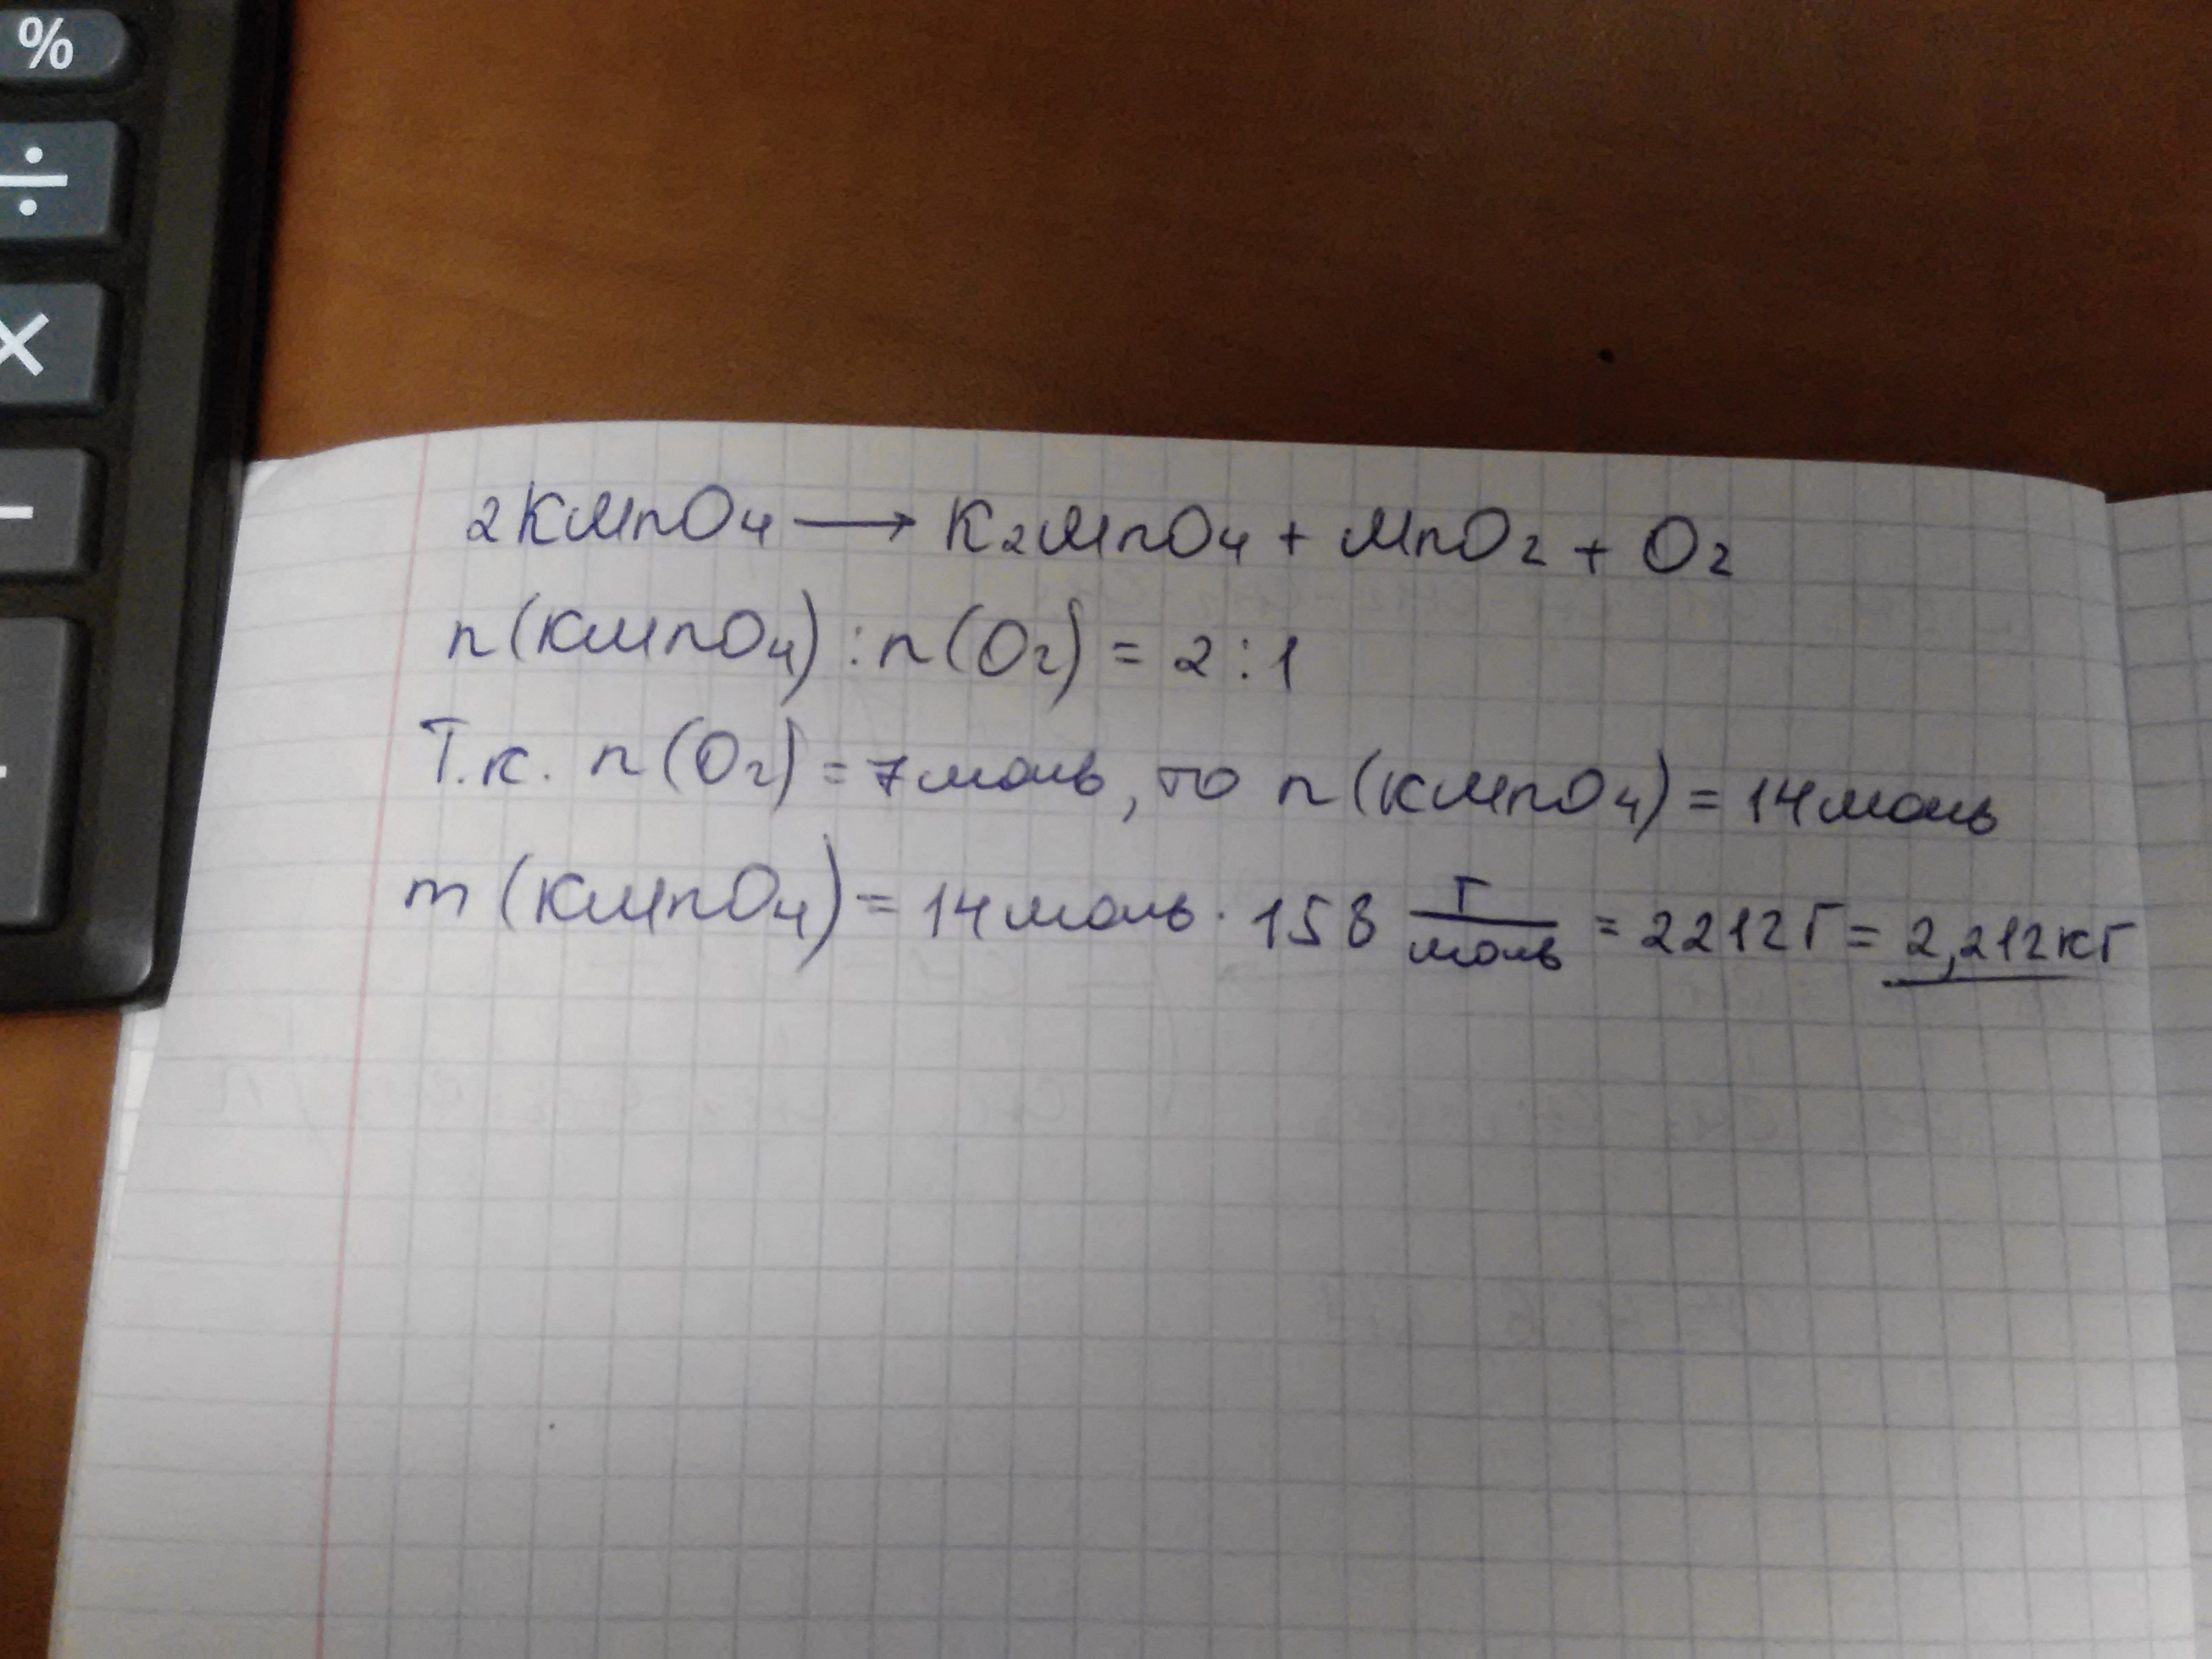 %
÷
×
−
2KMnO₄ → K₂MnO₄ + MnO₂ + O₂
n(KMnO₄) : n(O₂) = 2 : 1
Т.к. n(O₂) = 7 моль, то n(KMnO₄) = 14 моль
m(KMnO₄) = 14 моль · 158 г/моль = 2212 г = 2,212 кг